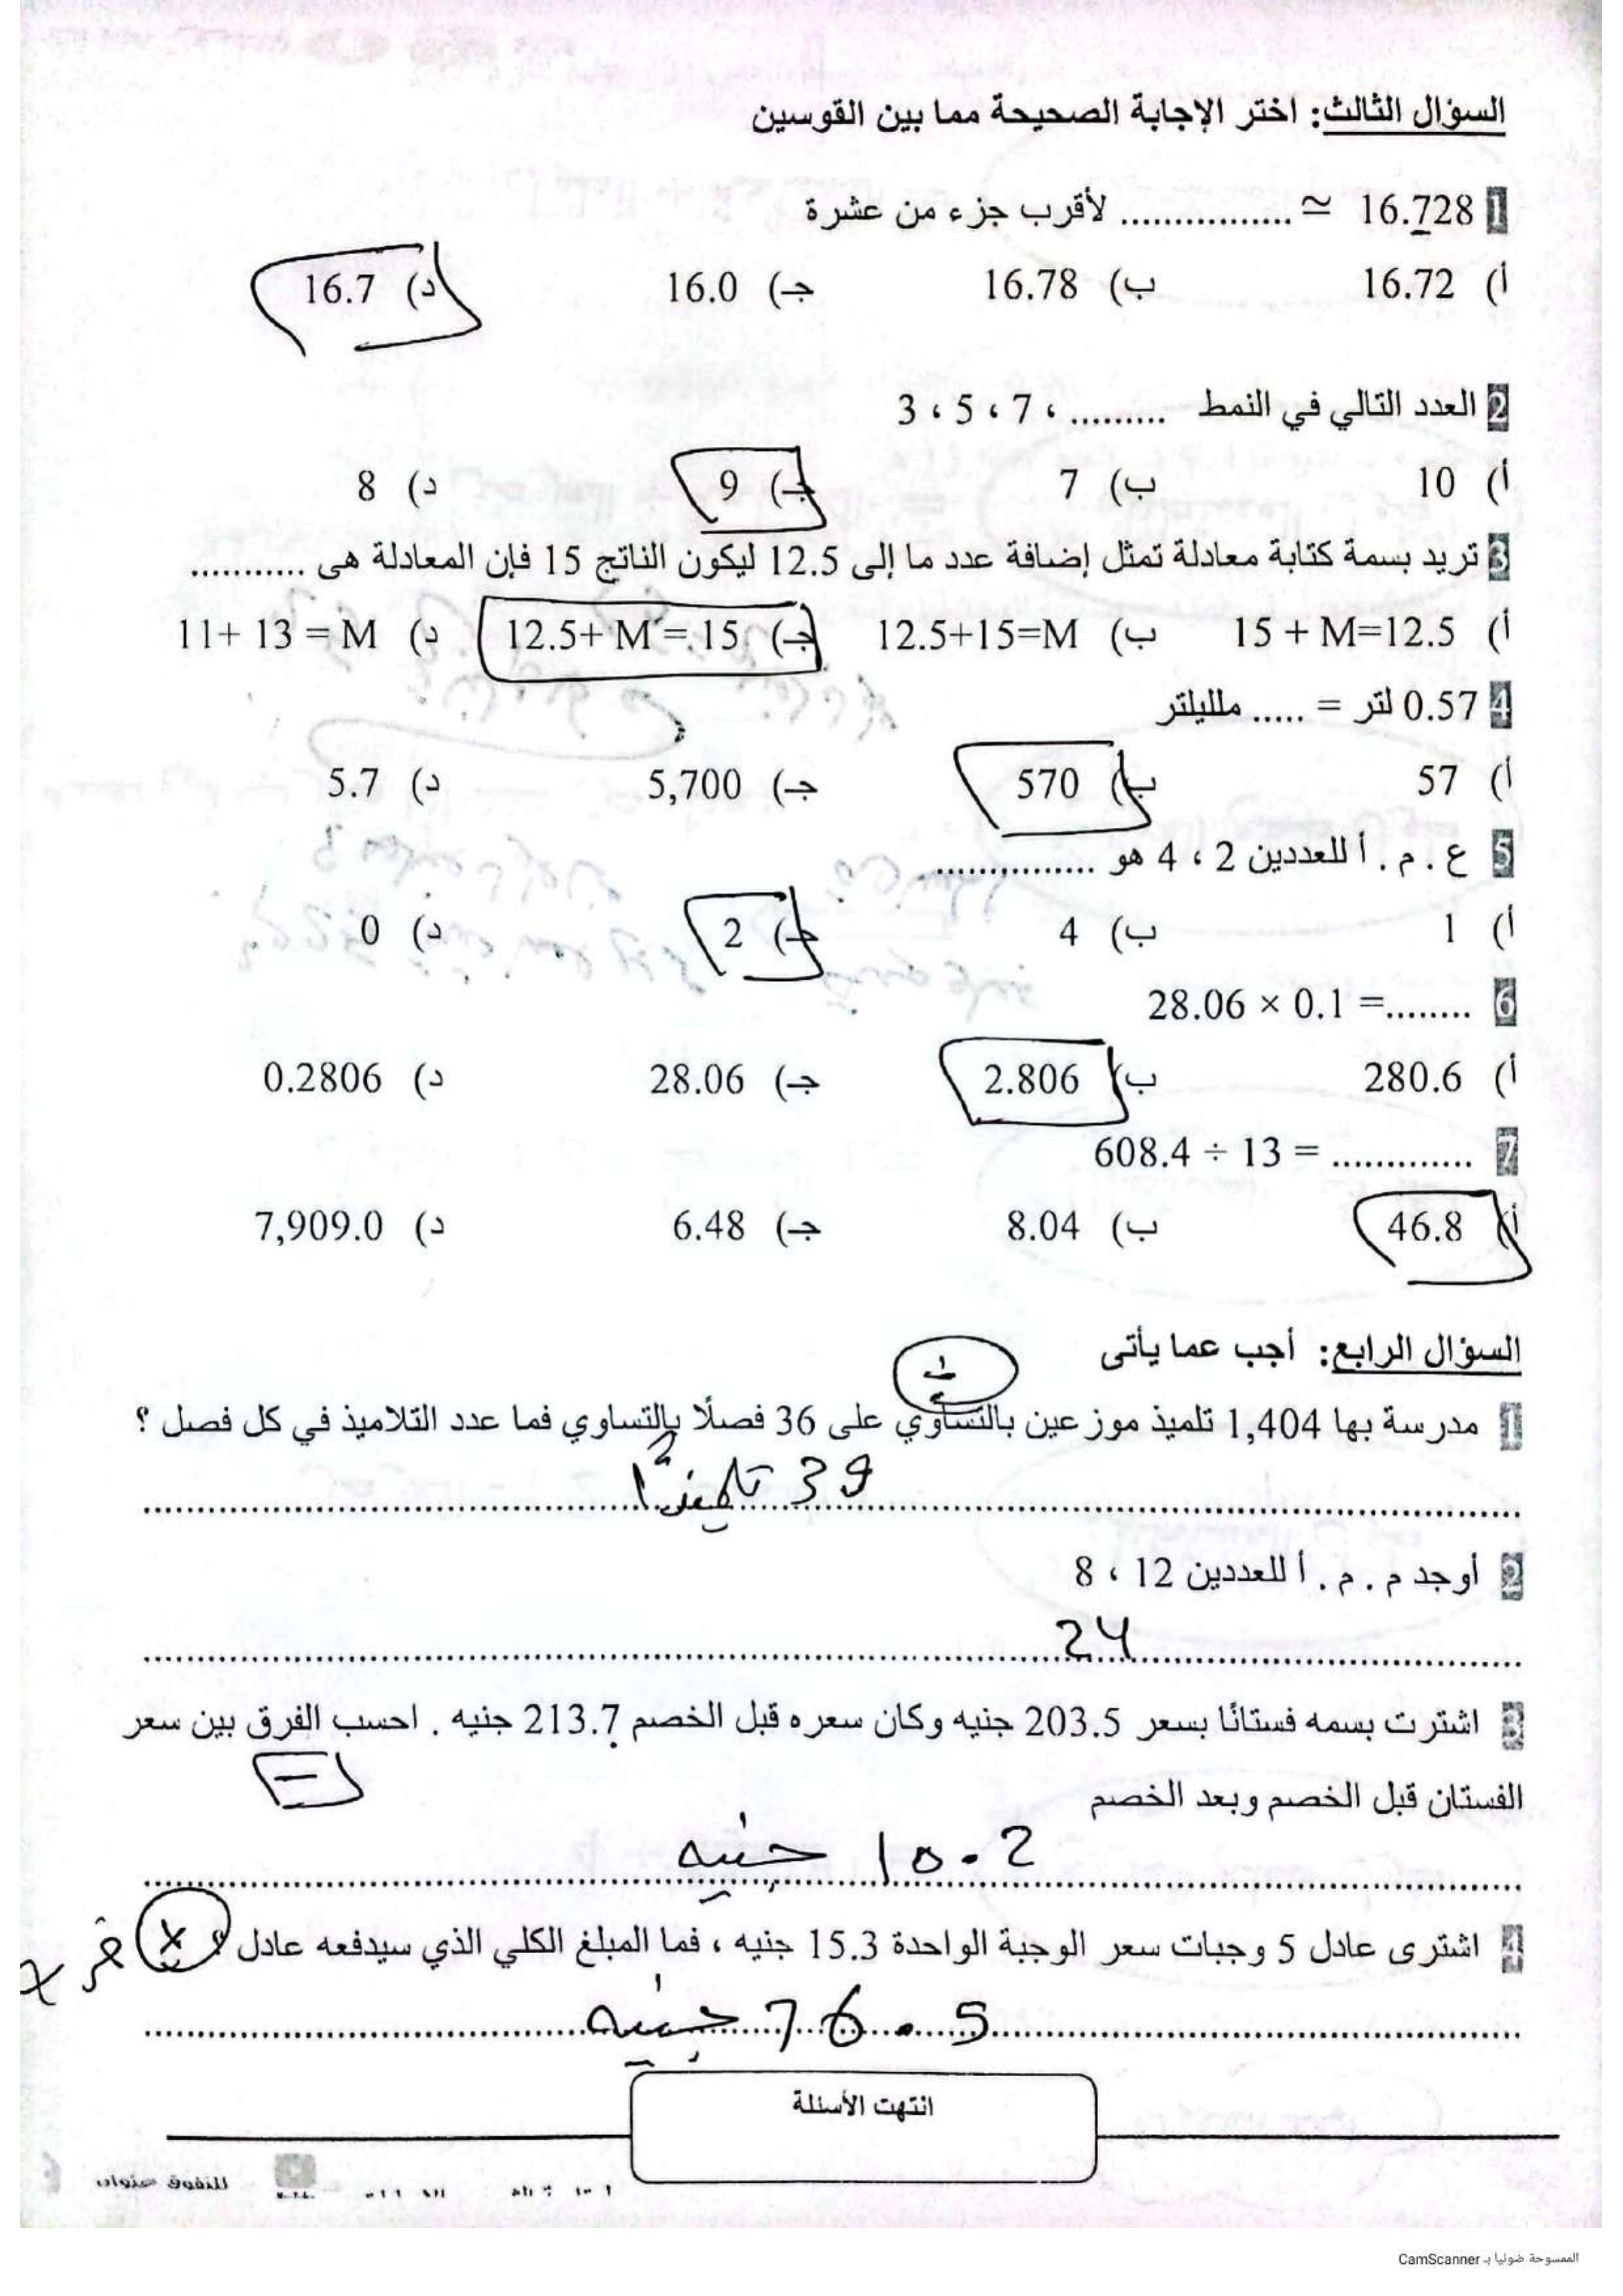 السؤال الثالث: اختر الإجابة الصحيحة مما بين القوسين
1 16.728 ≃ ................ لأقرب جزء من عشرة
أ) 16.72 ب) 16.78 جـ) 16.0 د) 16.7
2 العدد التالي في النمط ......... ، 7 ، 5 ، 3
أ) 10 ب) 7 جـ) 9 د) 8
3 تريد بسمة كتابة معادلة تمثل إضافة عدد ما إلى 12.5 ليكون الناتج 15 فإن المعادلة هى ...........
أ) 15 + M=12.5 ب) 12.5+15=M جـ) 12.5+ M = 15 د) 11+ 13 = M
4 0.57 لتر = ..... ملليلتر
أ) 57 ب) 570 جـ) 5,700 د) 5.7
5 ع . م . أ للعددين 2 ، 4 هو ................
أ) 1 ب) 4 جـ) 2 د) 0
6 28.06 × 0.1 =........
أ) 280.6 ب) 2.806 جـ) 28.06 د) 0.2806
7 608.4 ÷ 13 = .............
أ) 46.8 ب) 8.04 جـ) 6.48 د) 7,909.0
السؤال الرابع: أجب عما يأتى
÷
1 مدرسة بها 1,404 تلميذ موزعين بالتساوي على 36 فصلًا بالتساوي فما عدد التلاميذ في كل فصل ؟
39 تلميذًا
2 أوجد م . م . أ للعددين 12 ، 8
24
3 اشترت بسمه فستانًا بسعر 203.5 جنيه وكان سعره قبل الخصم 213.7 جنيه . احسب الفرق بين سعر
الفستان قبل الخصم وبعد الخصم
10.2 جنيه
4 اشترى عادل 5 وجبات سعر الوجبة الواحدة 15.3 جنيه ، فما المبلغ الكلي الذي سيدفعه عادل ؟
76.5 جنيه
انتهت الأسئلة
للتفوق عنوان
الممسوحة ضوئيا بـ CamScanner